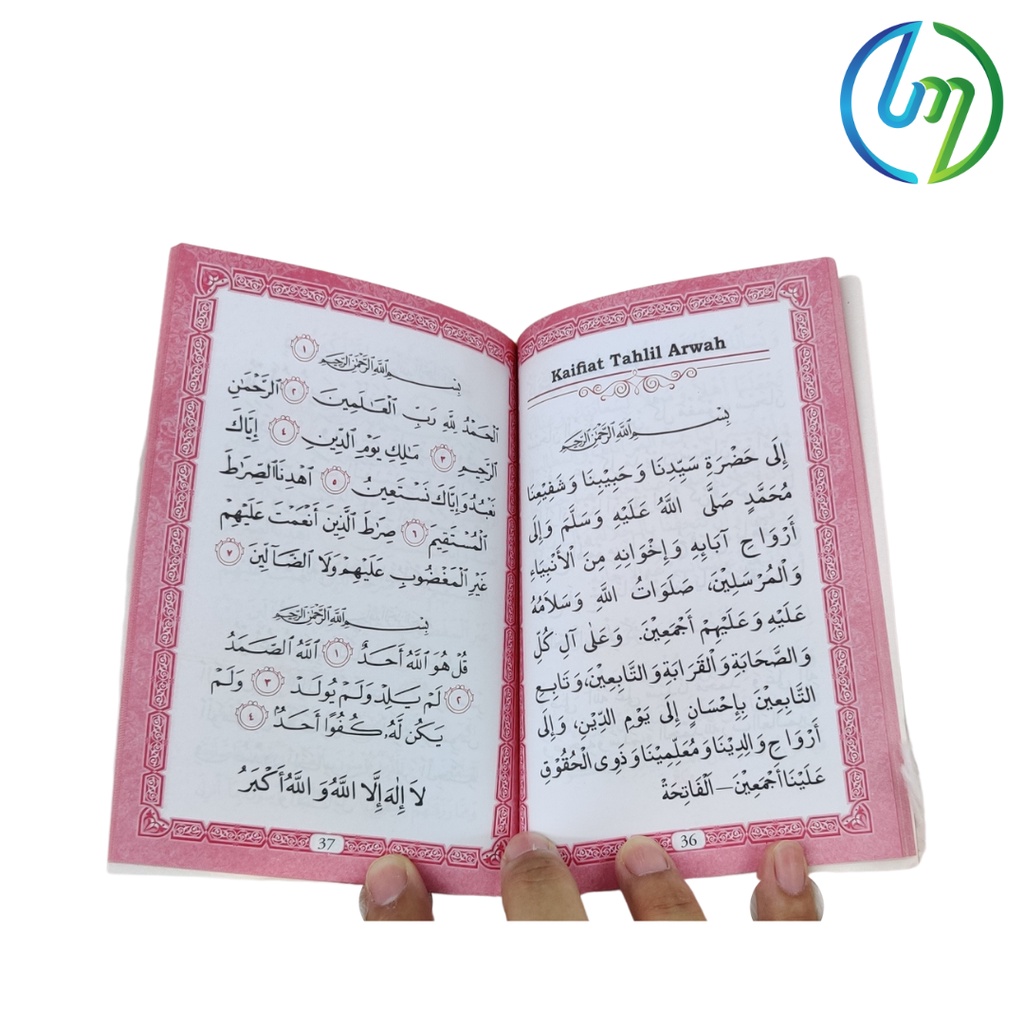 Kaifiat Tahlil Arwah
بِسْمِ اللَّهِ الرَّحْمَٰنِ الرَّحِيمِ
إِلَى حَضْرَةِ سَيِّدِنَا وَحَبِيْبِنَا وَشَفِيْعِنَا
مُحَمَّدٍ صَلَّى اللَّهُ عَلَيْهِ وَسَلَّمَ وَإِلَى
أَرْوَاحِ آبَائِهِ وَإِخْوَانِهِ مِنَ الْأَنْبِيَاءِ
وَالْمُرْسَلِيْنَ، صَلَوَاتُ اللَّهِ وَسَلَامُهُ
عَلَيْهِ وَعَلَيْهِمْ أَجْمَعِيْنَ. وَعَلَى آلِ كُلِّ
وَالصَّحَابَةِ وَالْقَرَابَةِ وَالتَّابِعِيْنَ، وَتَابِعِ
التَّابِعِيْنَ بِإِحْسَانٍ إِلَى يَوْمِ الدِّيْنِ، وَإِلَى
أَرْوَاحِ وَالِدِيْنَا وَمُعَلِّمِيْنَا وَذَوِى الْحُقُوْقِ
عَلَيْنَا أَجْمَعِيْنَ – اَلْفَاتِحَةْ
36
بِسْمِ اللَّهِ الرَّحْمَٰنِ الرَّحِيمِ ١
اَلْحَمْدُ لِلَّهِ رَبِّ الْعَـٰلَمِينَ ٢ الرَّحْمَـٰنِ
الرَّحِيمِ ٣ مَـٰلِكِ يَوْمِ الدِّينِ ٤ إِيَّاكَ
نَعْبُدُ وَإِيَّاكَ نَسْتَعِينُ ٥ اهْدِنَا الصِّرَٰطَ
الْمُسْتَقِيمَ ٦ صِرَٰطَ الَّذِينَ أَنْعَمْتَ عَلَيْهِمْ
غَيْرِ الْمَغْضُوبِ عَلَيْهِمْ وَلَا الضَّآلِّينَ ٧
بِسْمِ اللَّهِ الرَّحْمَٰنِ الرَّحِيمِ
قُلْ هُوَ اللَّهُ أَحَدٌ ١ اللَّهُ الصَّمَدُ
٢ لَمْ يَلِدْ وَلَمْ يُولَدْ ٣ وَلَمْ
يَكُن لَّهُۥ كُفُوًا أَحَدٌۢ ٤
لَا إِلٰهَ إِلَّا اللَّهُ وَاللَّهُ أَكْبَرُ
37